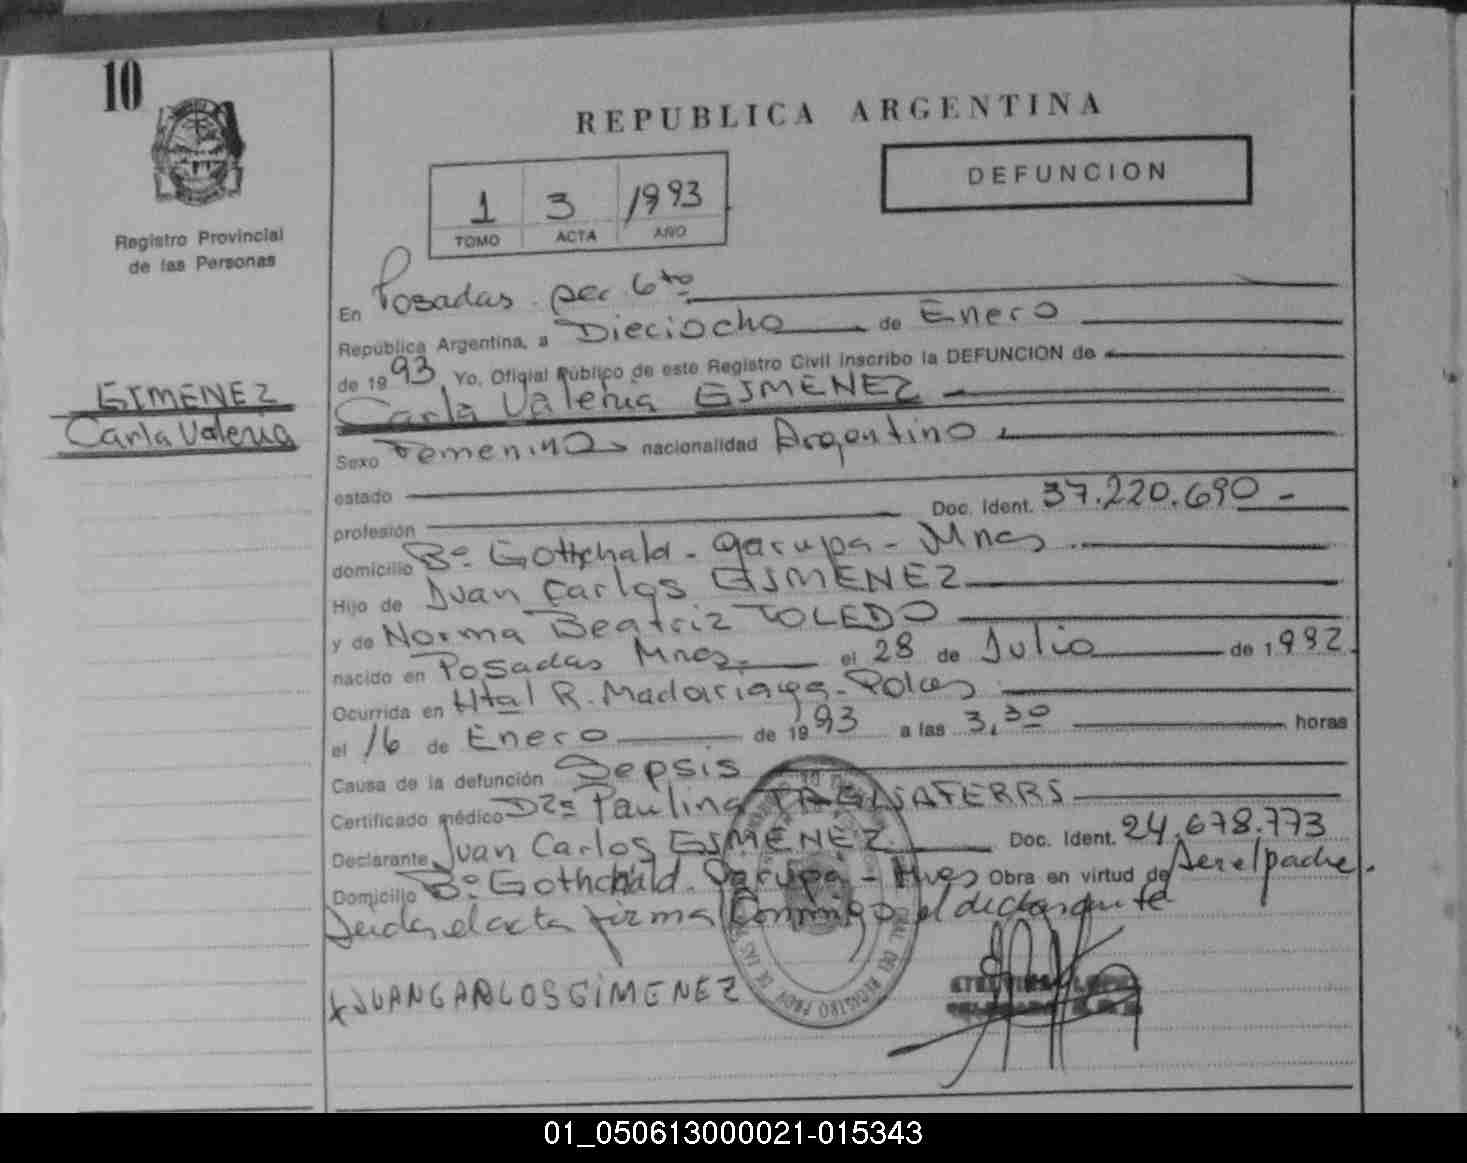 10
REPUBLICA ARGENTINA
DEFUNCION
1 3 1993
TOMO ACTA AÑO
Registro Provincial
de las Personas
GIMENEZ
Carla Valeria
En Posadas 6to
República Argentina, a Dieciocho de Enero
de 1993, Yo, Oficial Público de este Registro Civil inscribo la DEFUNCION de
Carla Valeria GIMENEZ
Sexo Femenino nacionalidad Argentino
estado
profesión Doc. Ident. 37.220.690 -
domicilio Bº Gottchald - Garupa - Mnes
Hijo de Juan Carlos GIMENEZ
y de Norma Beatriz TOLEDO
nacido en Posadas Mnes. el 28 de Julio de 1992.
Ocurrida en Htal R. Madariaga - Pdas
el 16 de Enero de 1993 a las 3,30 horas
Causa de la defunción Sepsis
Certificado médico Dra Paulina
Declarante Juan Carlos GIMENEZ Doc. Ident. 24.678.773
Domicilio Bº Gothchald - Garupa - Mnes Obra en virtud de Ser el padre.
Leida el acta firma Conmigo el declarante
x JUAN CARLOS GIMENEZ
01_050613000021-015343